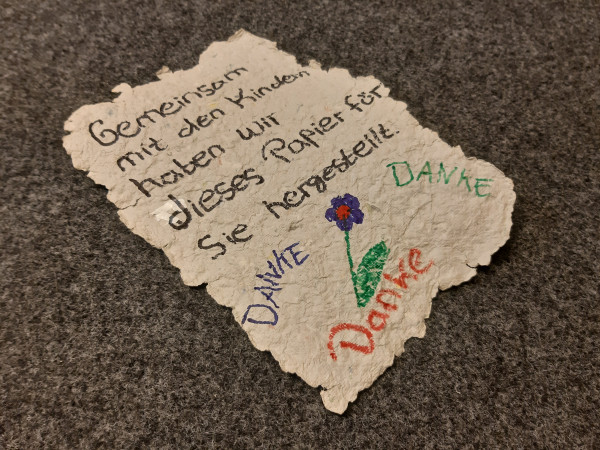 Gemeinsam
mit den Kindern
haben wir
dieses Papier für
Sie hergestellt.
DANKE
DANKE
Danke